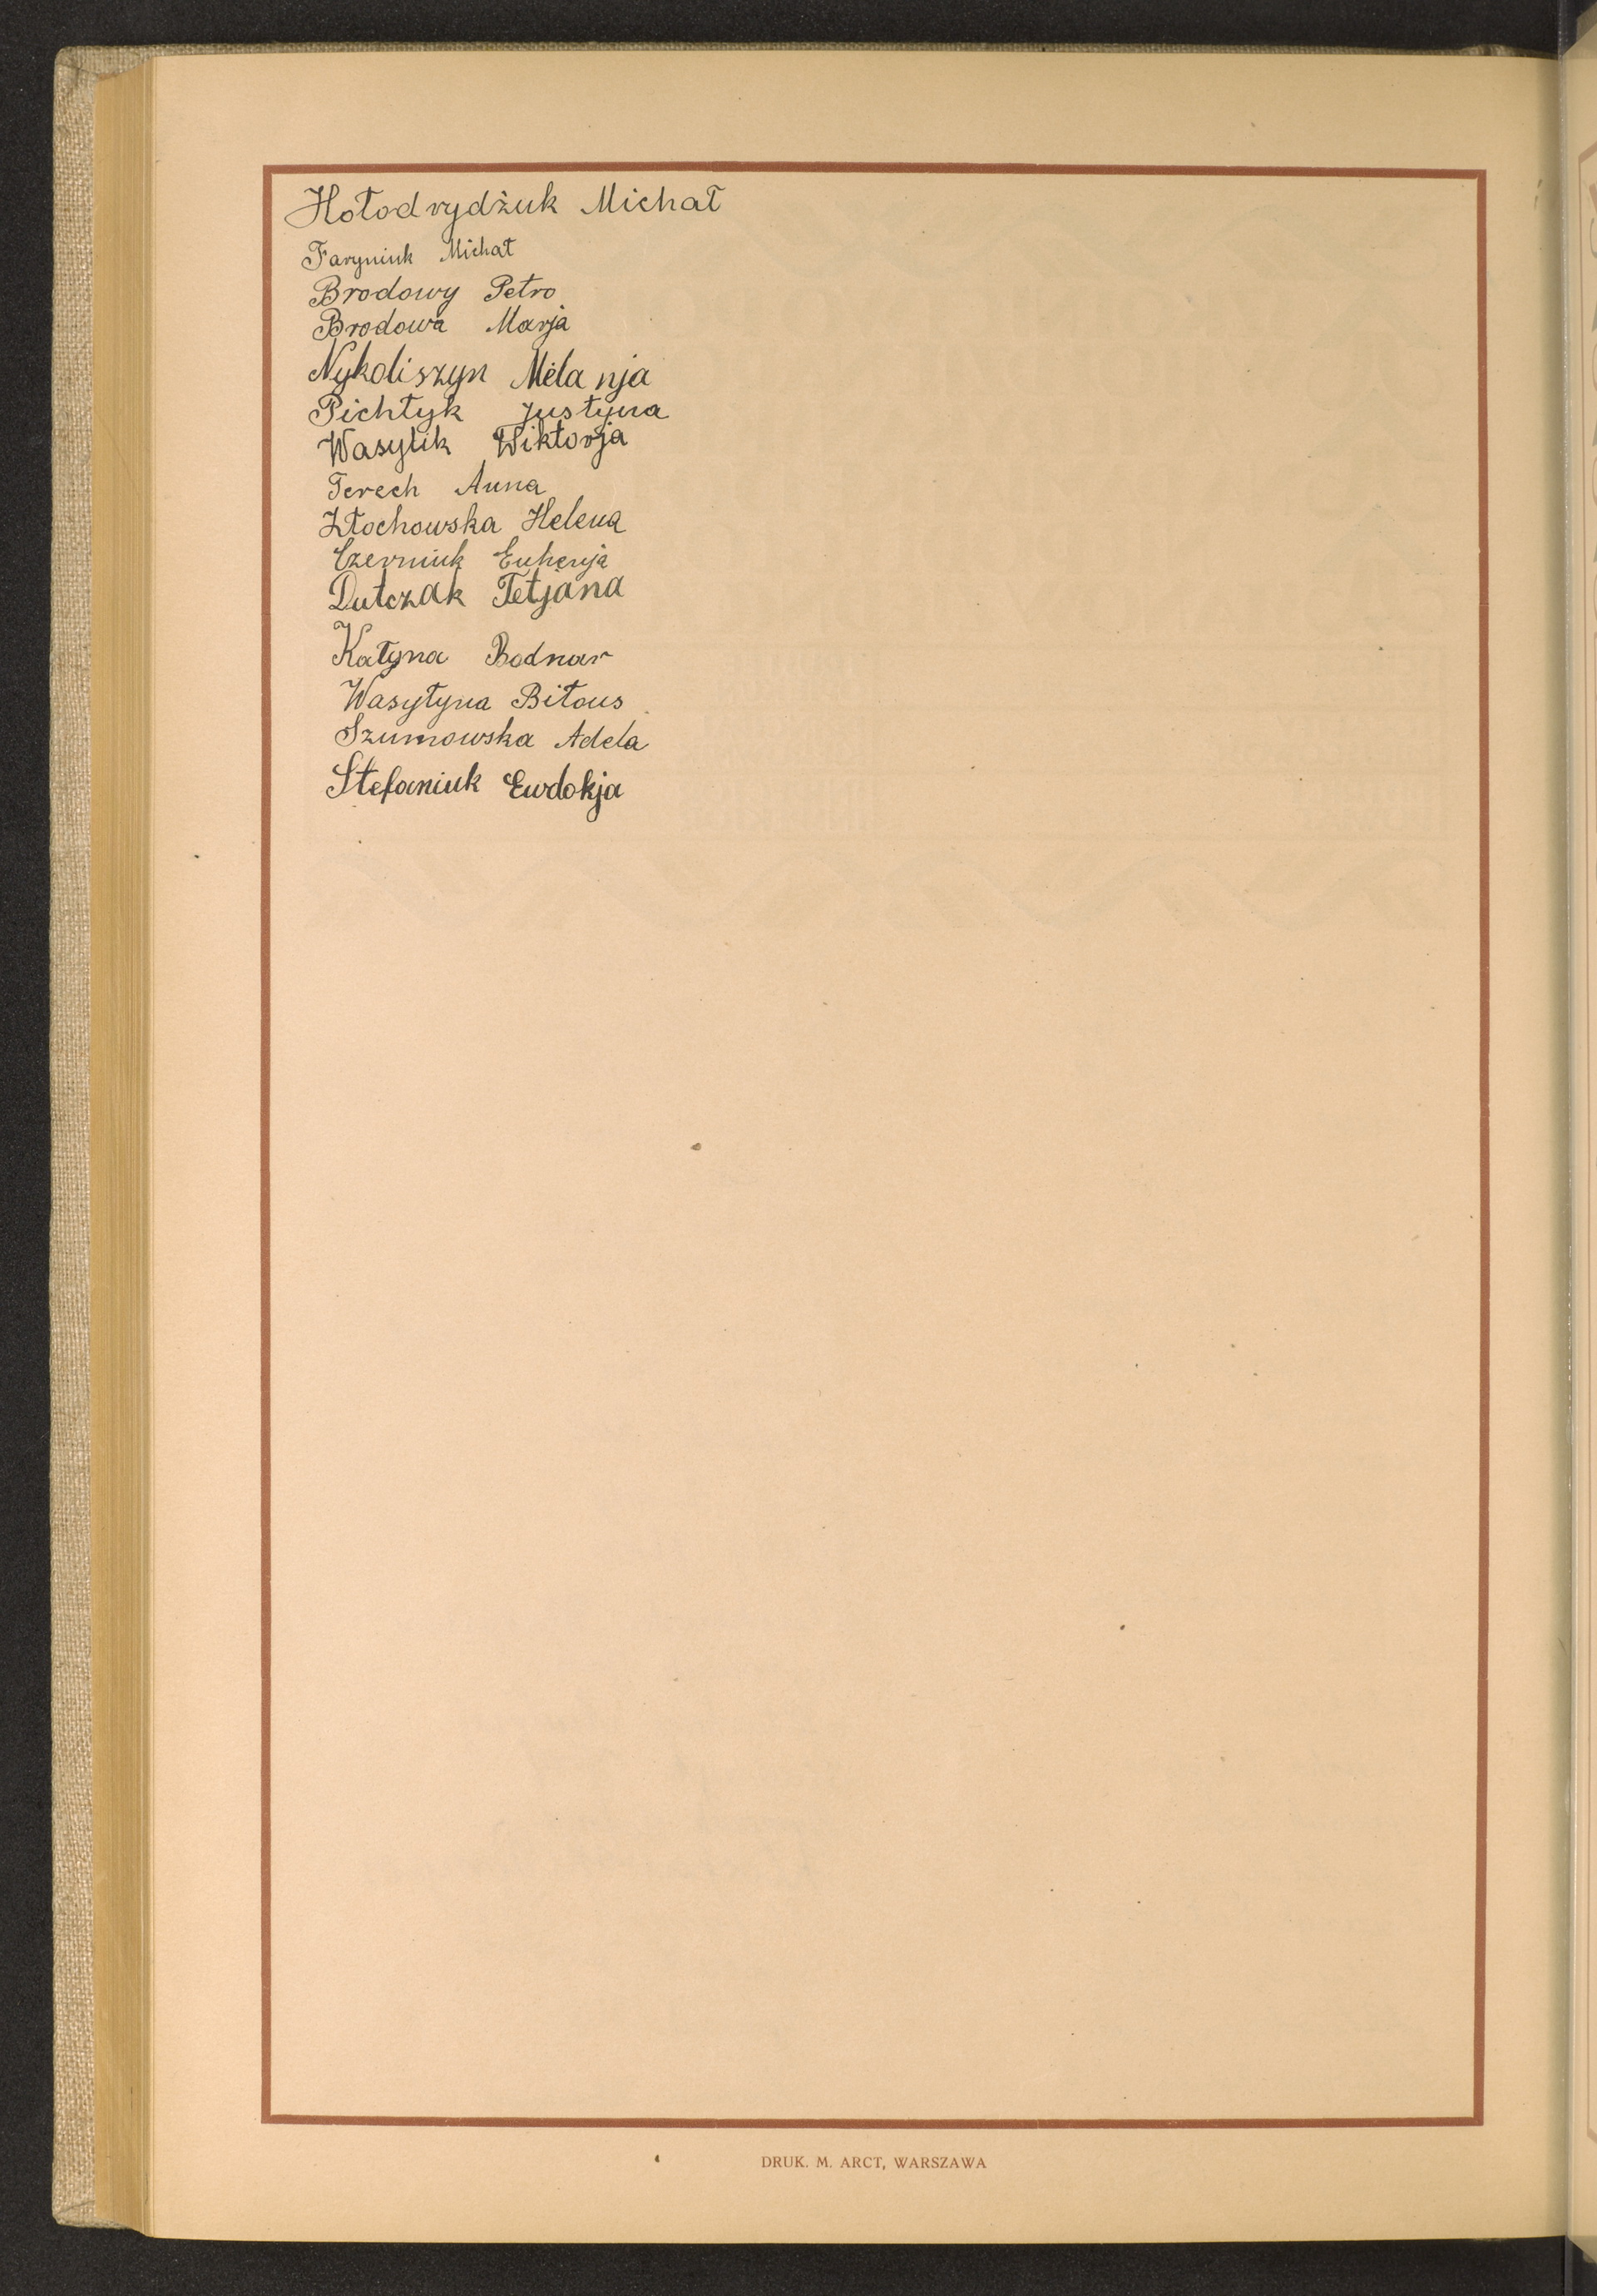 Hołodrydżuk Michał
Faryniuk Michał
Brodowy Petro
Brodowa Marja
Nykoliszyn Melanja
Pichłyk Justyna
Wasylik Wiktorja
Terech Anna
Złochowska Helena
Czerniuk Euhenja
Dutczak Tetjana
Katyna Bodnar
Wasyłyna Biłous
Szumowska Adela
Stefaniuk Ewdokja
DRUK. M. ARCT, WARSZAWA